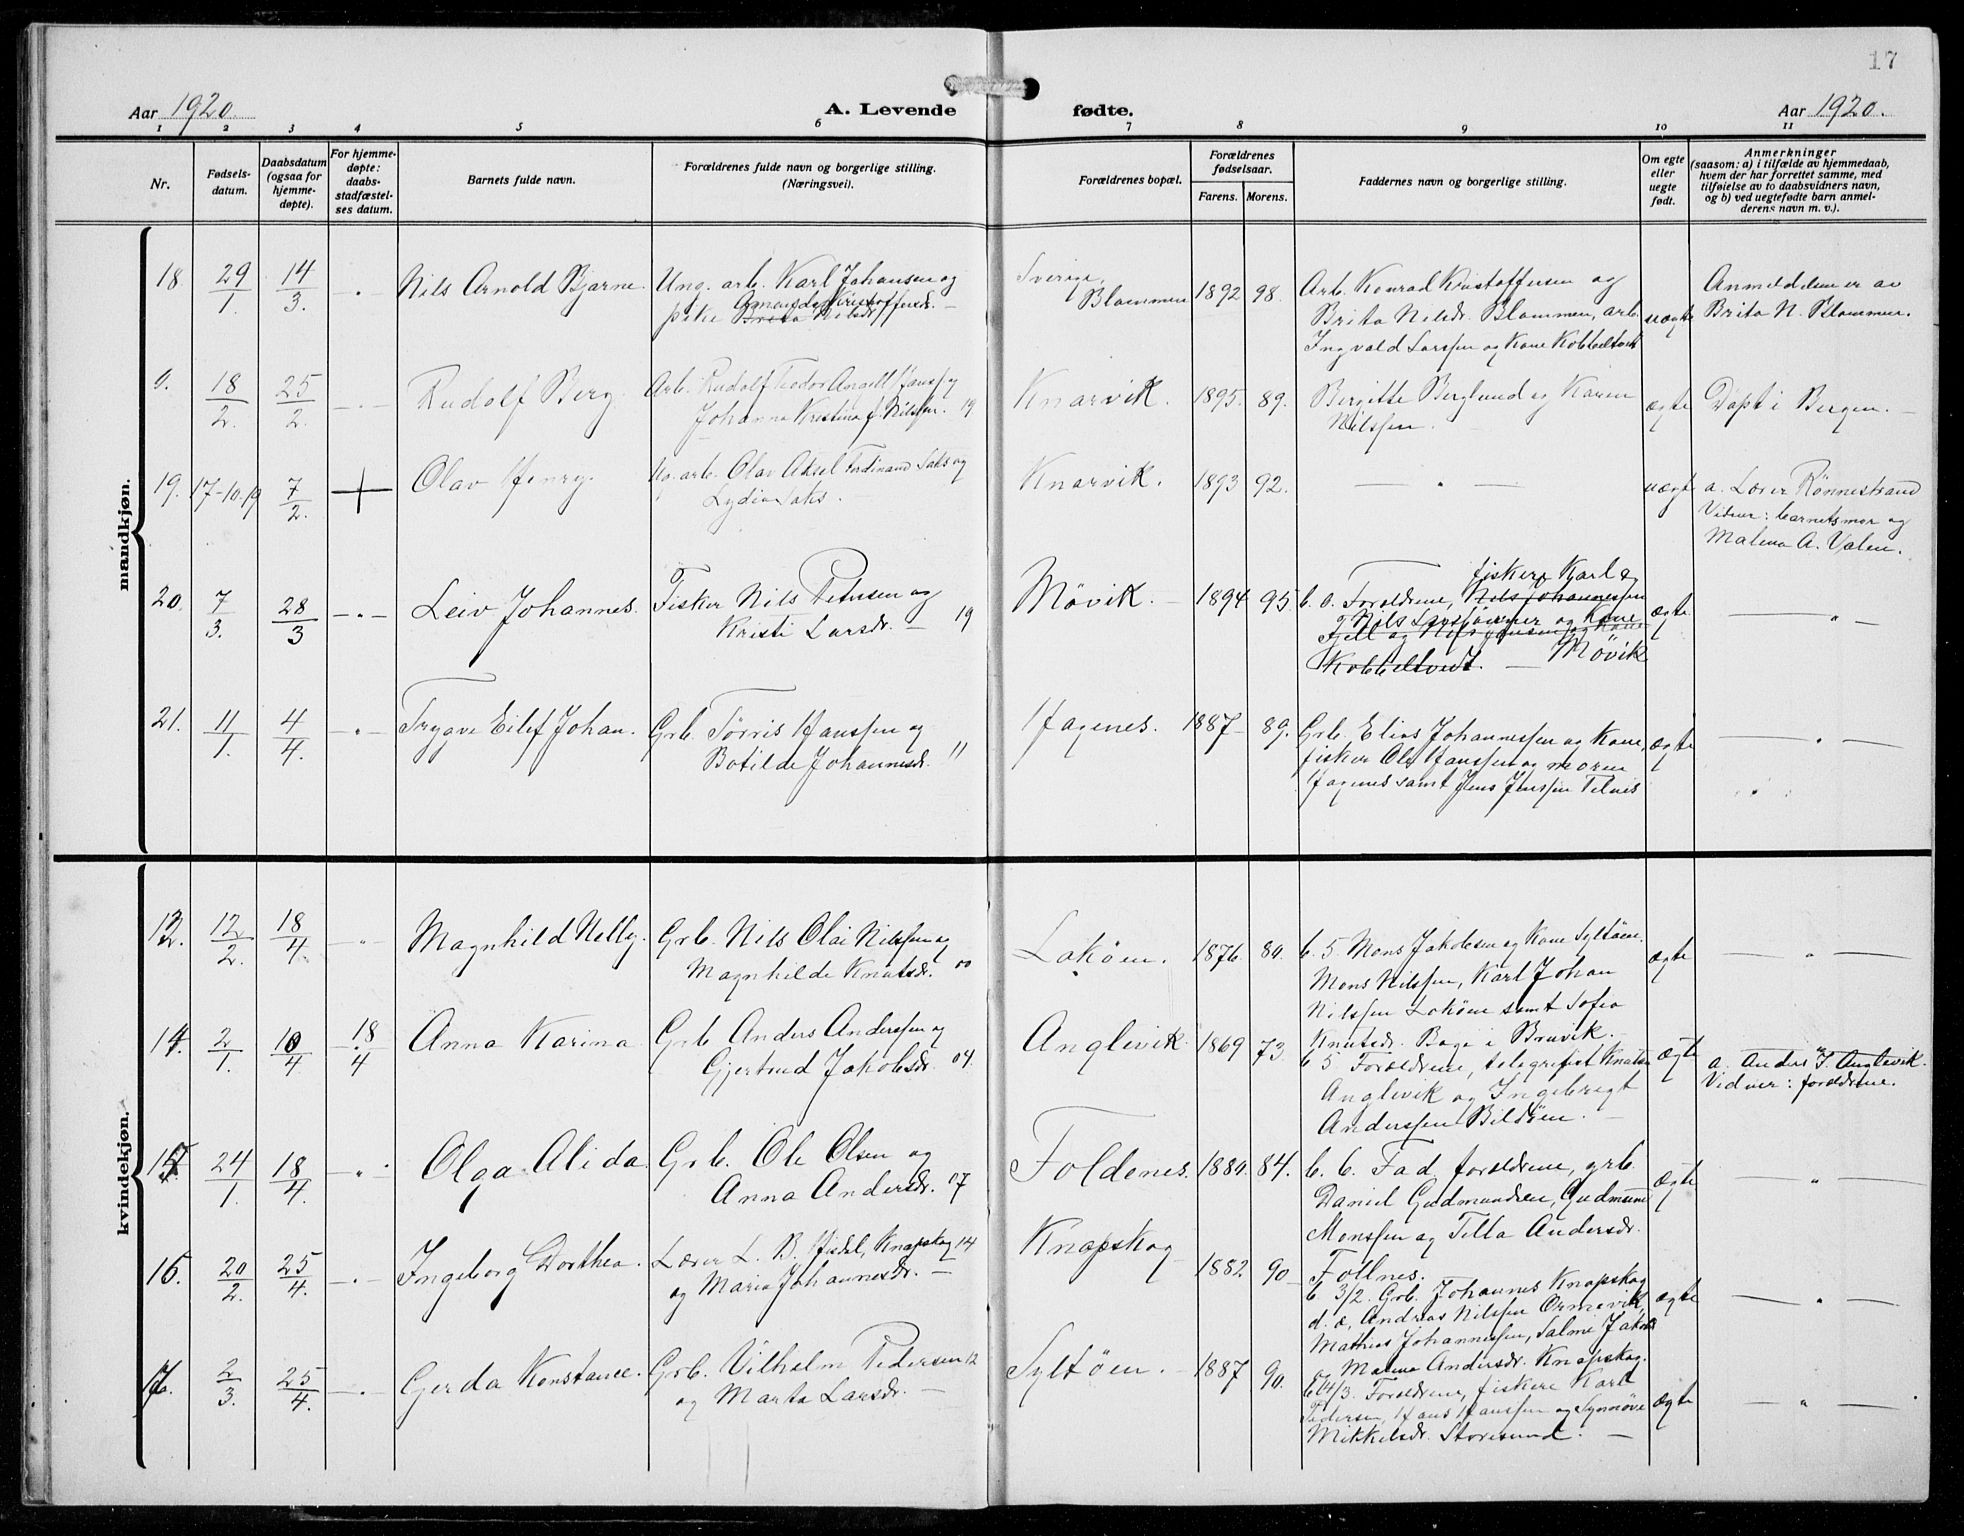 17
Aar 1920.
A. Levende
fødte.
Aar 1920.
1 2 3 4 5 6 7 8 9 10 11
Nr.
Fødsels-
datum.
Daabsdatum
(ogsaa for
hjemme-
døpte).
For hjemme-
døpte:
daabs-
stadfæstel-
ses datum.
Barnets fulde navn.
Forældrenes fulde navn og borgerlige stilling.
(Næringsvei).
Forældrenes bopæl.
Forældrenes
fødselsaar.
Farens. Morens.
Faddernes navn og borgerlige stilling.
Om egte
eller
uegte
født.
Anmerkninger
(saasom: a) i tilfælde av hjemmedaab,
hvem der har forrettet samme, med
tilføielse av to daabsvidners navn,
og b) ved uegtefødte barn anmel-
derens navn m. v.).
mandkjøn.
18 29/1. 14/3. Nils Arnold Bjarne. Ung. arb. Karl Johansen og
Amanda Kristoffersdr.
pike Brita Nilsdr.
Sverige
Blommen 1892 98.
Arb. Konrad Kristoffersen og
Brita Nilsdr. Blommen, arb.
Ingvald Larssen og Kone Kobbeltvedt
uægte
Anmeldelsen er av
Brita N. Blommen.
0. 18/2. 25/2. Rudolf Berg. Arb. Rudolf Teodor Hanss og
Johanna Kristina f. Nilssen. 19
Knarvik. 1895. 89.
Bergitte Berglund og Karen
Nilssen.
ægte
Døpt i Bergen.
19. 17-10.19 7/2. + Olav Henry. Ug. arb. Olav Aksel Ferdinand Saks og
Lydia Saks.
Knarvik. 1893 92. uægte
a. Lærer Rönnestrand
Vidner: barnets mor og
Malena A. Valen.
20. 7/3. 28/3 Leiv Johannes. Fisker Nils Petersen og
Kristi Larsdr. 19
Møvik. 1894 95.
fiskere Karl og
b. o. Foreldrene, Nils Johannessen
og Nils Larssönner og Kone
Fjell og Nils Jansen og Kone
Kobbeltvedt. Møvik
ægte
21. 11/1. 4/4. Trygve Eilef Johan. Grb. Törris Hanssen og
Botilde Johannesdr. 11
Hagenes. 1887 89.
Grb. Elias Johannessen og Kone,
fisker Ole Hanssen og moren
Hagenes samt Jens Jenssen Telnes
ægte
kvindekjøn.
13. 12/2. 18/4. Magnhild Nelly. Grb. Nils Olai Nilssen og
Magnhilde Knutsdr. 00
Lokøen. 1876 80.
b. 5 Mons Jakobsen og Kone Syltöen.
Mons Nilssen, Karl Johan
Nilssen Loköen samt Sofia
Knutsdr. Boge i Bruvik.
ægte
14. 2/1. 10/4 18/4 Anna Karina Grb Anders Anderssen og
Gjertrud Jakobsdr. 04.
Anglevik 1869 73.
b 5 Foreldrene, telegrafist Knutsen
Anglevik og Ingebrigt
Anderssen Bildöen.
ægte
a. Anders J. Anglevik.
Vidner: foreldrene.
15 24/1. 18/4. Olga Alida. Grb. Ole Olsen og
Anna Andersdr. 07
Foldenes. 1880. 84.
b. 6. Fad. foreldrene, grb.
Daniel Gudmundsen, Gudmund
Monssen og Tilla Andersdr.
Follnes.
ægte
16. 20/2. 25/4. Ingeborg Dorthea. Lærer L. B. Hisdal, Knapskog 14
og Maria Johannesdr.
Knapskog 1882. 90
b 3/2. Grb. Johannes Knapskog
d. æ, Andreas Nilssen Ormevik,
Mathias Johannessen, Salmi Jakobsdr
Malena Andersdr. Knapskog.
ægte
17. 2/3. 25/4. Gerda Konstance. Grb. Vilhelm Pedersen 12
og Marta Larsdr.
Syltöen. 1887 90.
b 14/3. Foreldrene, fiskere Karl
Pedersen, Hans Hanssen og Synnöve
Mikkelsdr. Storesund.
ægte